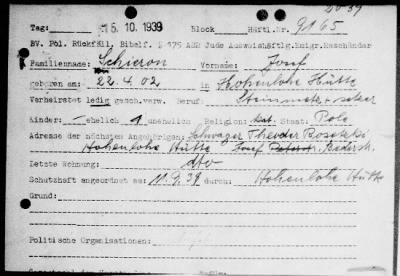 20 39
Tag: 5. 10. 1939 Block Häftl.Nr. 9165
BV. Pol. Rückfäll. Bibelf. § 175 ASR Jude Ausweishäftlg. Emigr. Maschänder
Familienname: Schieron Vorname: Josef
geboren am: 22.4.02 in Hohenlohe Hütte
Verheiratet ledig gesch. verw. Beruf: Steinmetz
Kinder: ehelich 1 unehelich Religion: kat. Staat: Pole
Adresse der nächsten Angehörigen: Schwager Theodor
Hohenlohe Hütte Josef
Letzte Wohnung: dto
Schutzhaft angeordnet am: 11.9.39 durch: Hohenlohe Hütte
Grund:
Politische Organisationen: